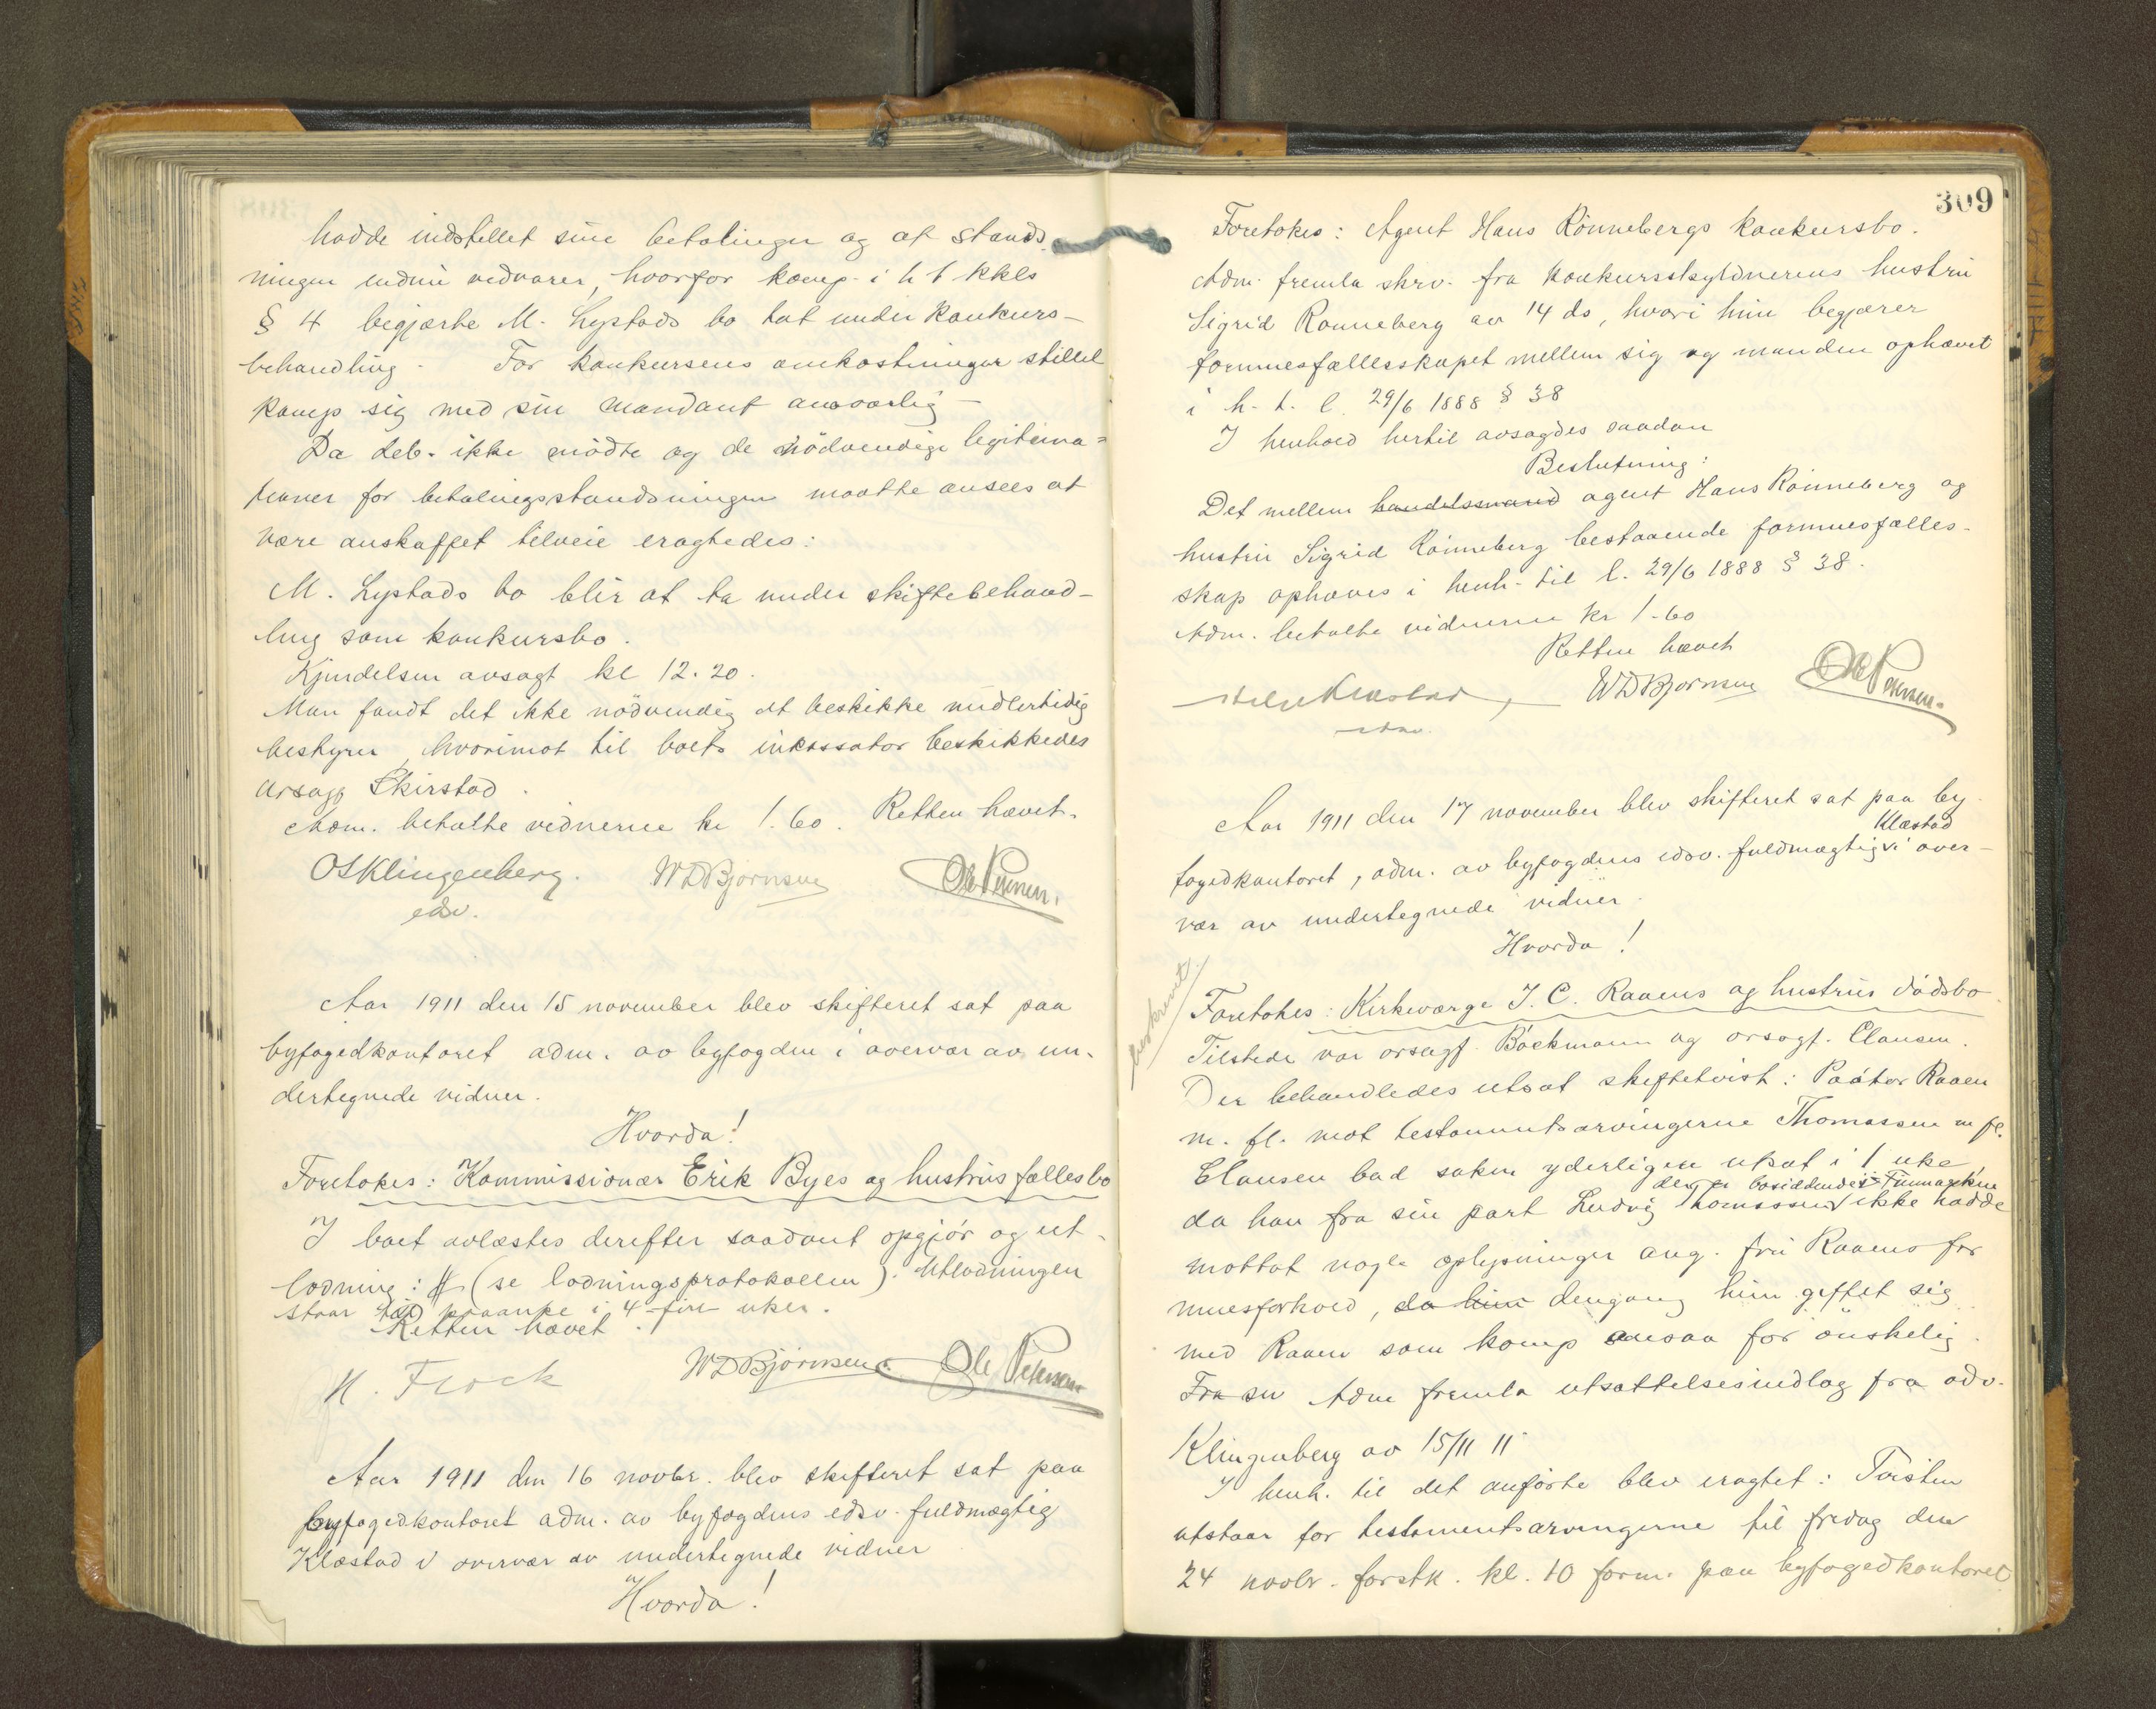 hadde indstillet sine betalinger og at stands-
ningen endnu vedvarer, hvorfor komp. i h t kkls
§ 4 begjærte M. Lystads bo tat under konkurs-
behandling. For konkursens omkostninger stillet
komp sig med sin mandant ansvarlig –
Da deb. ikke mödte og de nödvendige legitima-
tioner for betalingsstandsningen maatte ansees at
være anskaffet tilveie eragtedes:
M. Lystads bo blir at ta under skiftebehand-
ling som konkursbo.
Kjendelsen avsagt kl 12.20.
Man fandt det ikke nödvendig at beskikke midlertidig
bestyrer, hvorimot til boets inkassator beskikkedes
orsagf Skirstad.
Adm. betalte vidnerne kr 1.60. Retten hævet.
OSKlingenberg. WDBjørnsen Ole Petersen.
edsv.
Aar 1911 den 15 november blev skifteret sat paa
byfogedkontoret adm. av byfogden i overvær av un-
dertegnede vidner.
Hvorda!
Foretokes: Kommissionær Erik Byes og hustrus fællesbo
I boet avlæstes derefter saadant opgjör og ut-
lodning: # (se lodningsprotokollen). Utlodningen
staar til paaanke i 4-fire uker.
Retten hævet.
H. Flock WDBjörnsen. Ole Petersen
Aar 1911 den 16 novbr. blev skifteret sat paa
byfogedkontoret adm. av byfogdens edsv. fuldmægtig
Klæstad i overvær av undertegnede vidner
Hvorda!
309
Foretokes: Agent Hans Rönnebergs konkursbo.
Adm. fremla skrv. fra konkursskyldnerens hustru
Sigrid Rönneberg av 14 ds, hvori hun begjærer
formuesfællesskapet mellem sig og manden ophævet
i h. t. l. 29/6 1888 § 38
I henhold hertil avsagdes saadan
Beslutning:
Det mellem handelsmand agent Hans Rönneberg og
hustru Sigrid Rönneberg bestaaende formuesfælles-
skap ophæves i henh. til l. 29/6 1888 § 38.
Adm. betalte vidnerne kr 1.60
Retten hævet
Klæstad WDBjørnsen Ole Petersen.
edsv.
Aar 1911 den 17 november blev skifteret sat paa by-
Klæstad
fogedkontoret, adm. av byfogdens edsv. fuldmægtig i over-
vær av undertegnede vidner.
Hvorda!
beskrevet
Foretokes: Kirkeværge J. C. Raaens og hustrus dödsbo
Tilstede var orsagf. Böckmann og orsagf. Clausen.
Der behandledes utsat skiftetvist: Pastor Raaen
m. fl. mot testamentsarvingerne Thomassen m fl.
Clausen bad saken yderligere utsat i 1 uke
der er bosiddende i Finmarken
da han fra sin part Ludvig Thomassen ikke hadde
mottat nogle oplysninger ang. fru Raaens for
muesforhold, da hun dengang hun giftet sig
med Raaen som komp ansaa for önskelig.
Fra sv Adm fremla utsættelsesindlæg fra adv.
Klingenberg av 15/11 11
I henh. til det anförte blev eragtet: Tvisten
utstaar for testamentsarvingerne til fredag den
24 novbr. forstk. kl. 10 form. paa byfogedkontoret